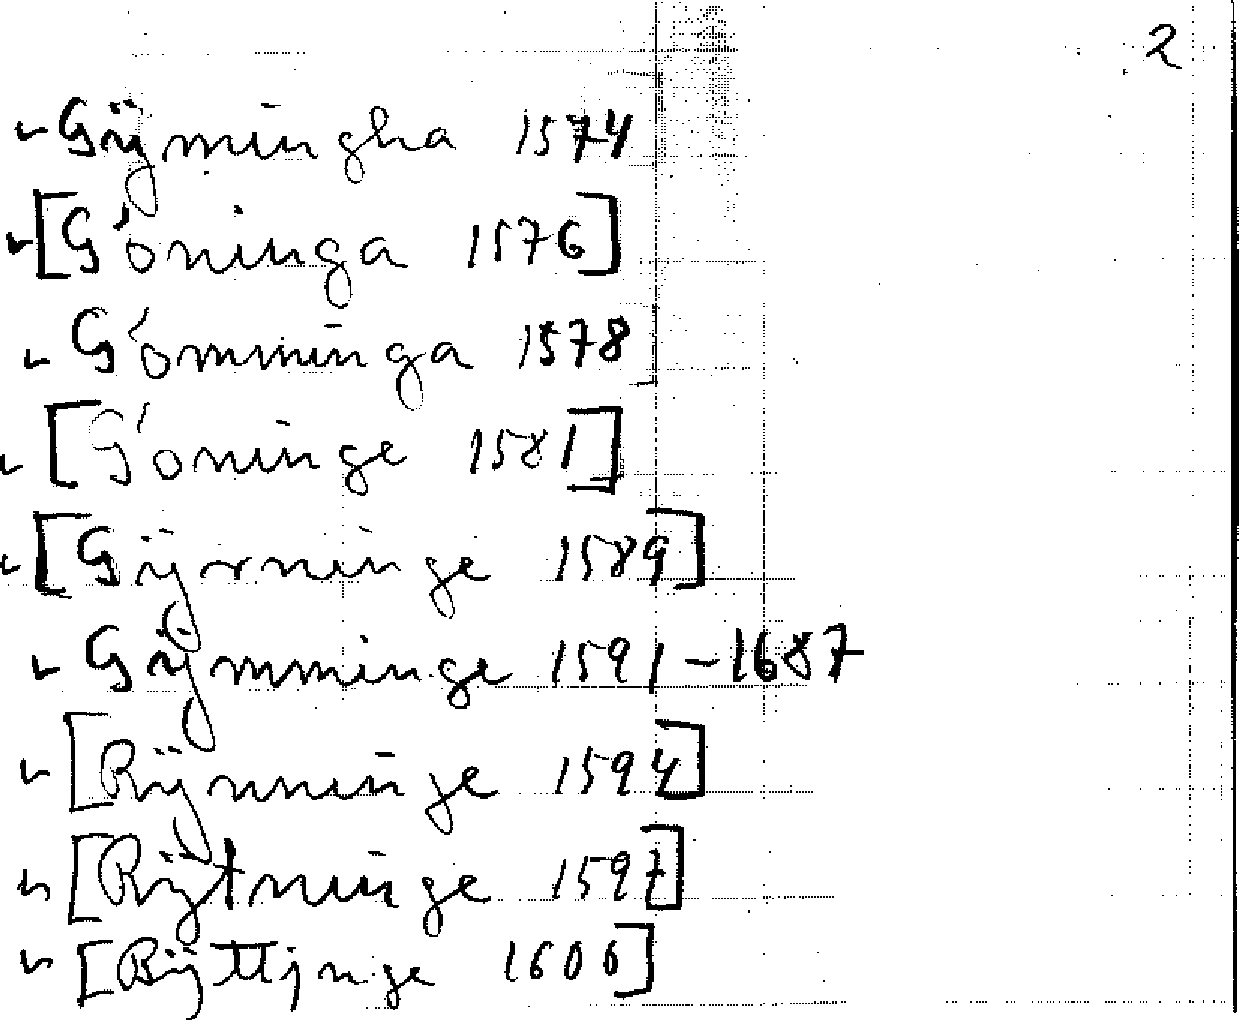 2
Gÿmingha 1574
[Göninga 1576]
Gómminga 1578
[Góninge 1581]
[Gÿrninge 1589]
Gÿmminge 1591-1687
[Rÿnninge 1594]
[Rÿtninge 1597]
[Rÿttjnge 1606]